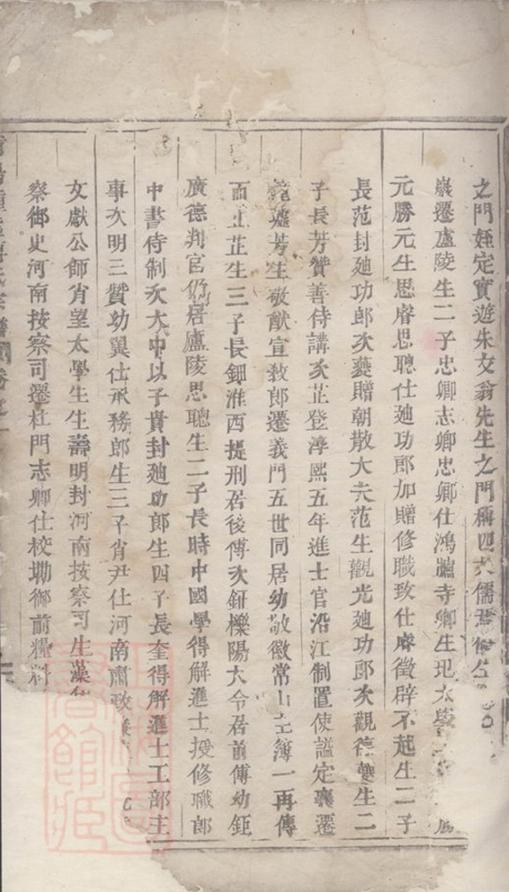 之門姪定實遊朱文翁先生之門稱四大儒
裳遷盧陵生二子忠卿志卿忠卿仕鴻臚寺卿生
元勝元生思睿思聰仕廸功郎加贈修職致仕睿徵辟不起生二子
長范封廸功郎次夔贈朝散大夫范生觀光廸功郎次觀德夔生二
子長芳贊善侍講次芷登淳熙五年進士官沿江制置使諡定襄遷
芳生敬猷宣教郎遷義門五世同居幼敬徽常山主簿一再傳
而止芷生三子長鈿淮西提刑居後傅次鈕櫟陽大令居前傅幼鉅
廣德判官仍居廬陵思聰生二子長時中國學得解進士授修職郎
中書待制次大中以子貴封廸功郎生四子長奎得解進士工部主
事次明三贊幼翼仕承務郎生三子肖尹仕河南肅政
文獻公師肖望太學生生壽明封河南按察司生藻
察御史河南按察司遷杜門志卿仕校勘御前糧料